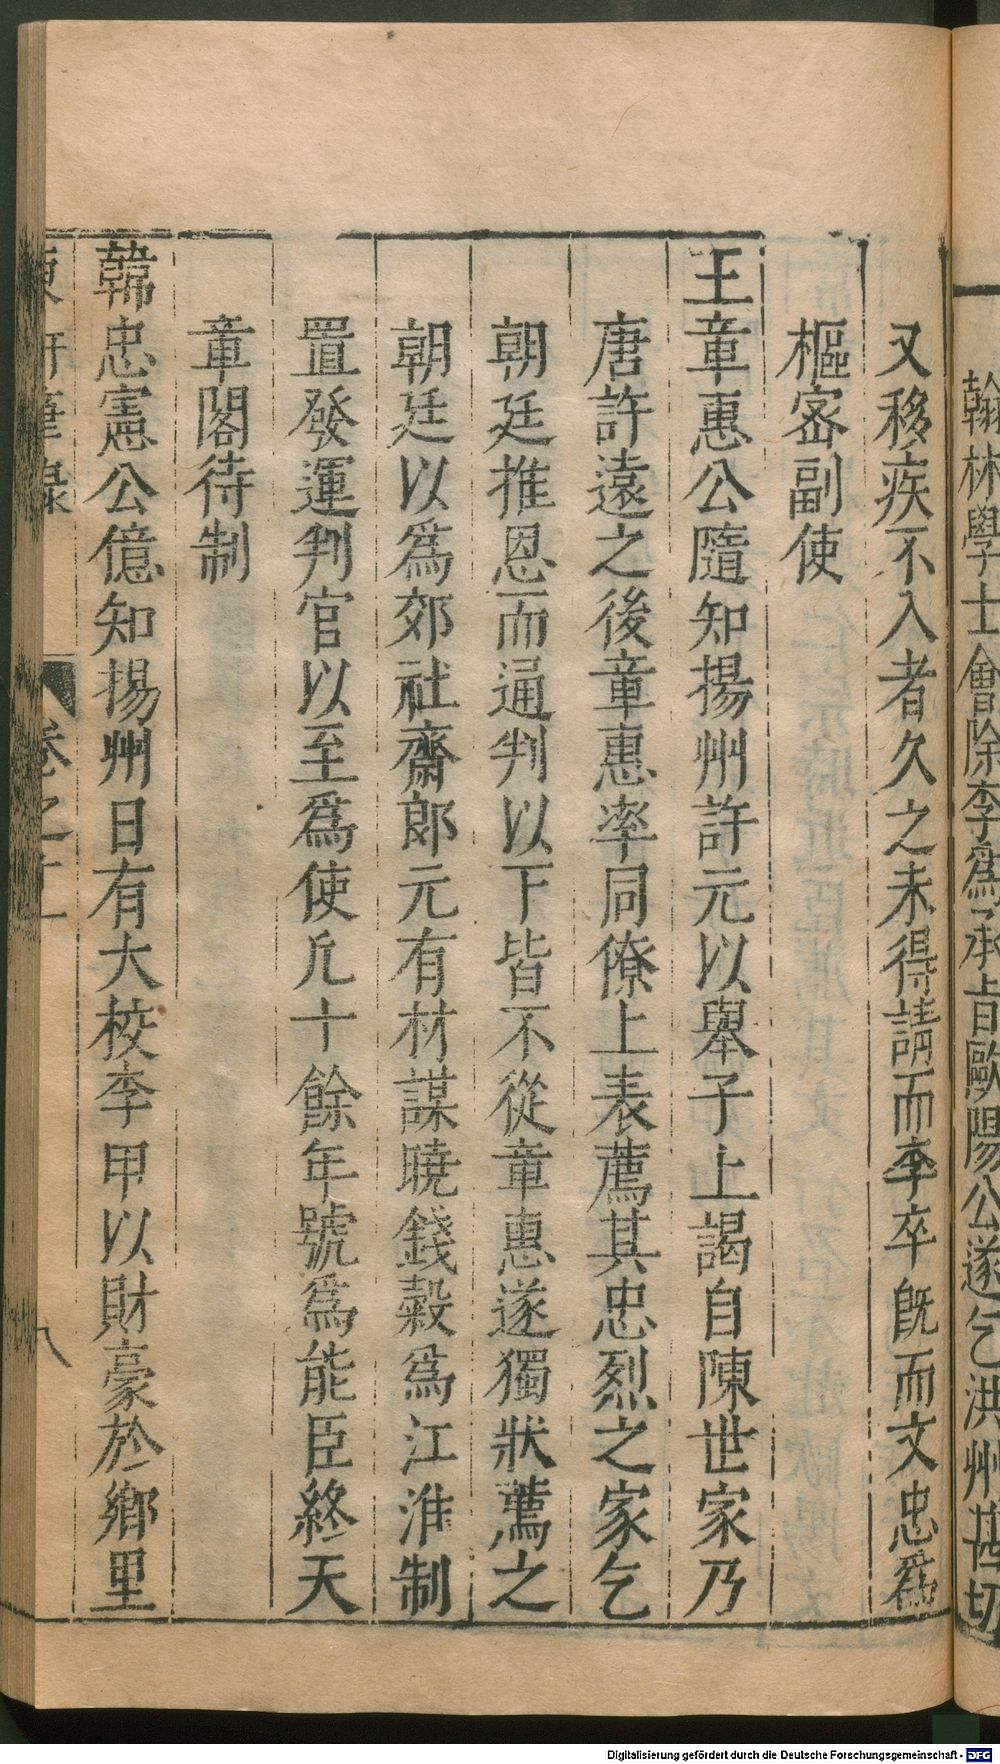 翰林學士會除李爲承旨歐陽公遂乞洪州甚切
又移疾不入者久之未得請而李卒旣而文忠爲
樞密副使
王章惠公隨知揚州許元以舉子上謁自陳世家乃
唐許遠之後章惠率同僚上表薦其忠烈之家乞
朝廷推恩而通判以下皆不從章惠遂獨狀薦之
朝廷以爲郊社齋郎元有材謀曉錢穀爲江淮制
置發運判官以至爲使凡十餘年號爲能臣終天
章閣待制
韓忠憲公億知揚州日有大校李甲以財豪於鄉里
東軒筆錄 卷之十一 八
Digitalisierung gefördert durch die Deutsche Forschungsgemeinschaft - DFG